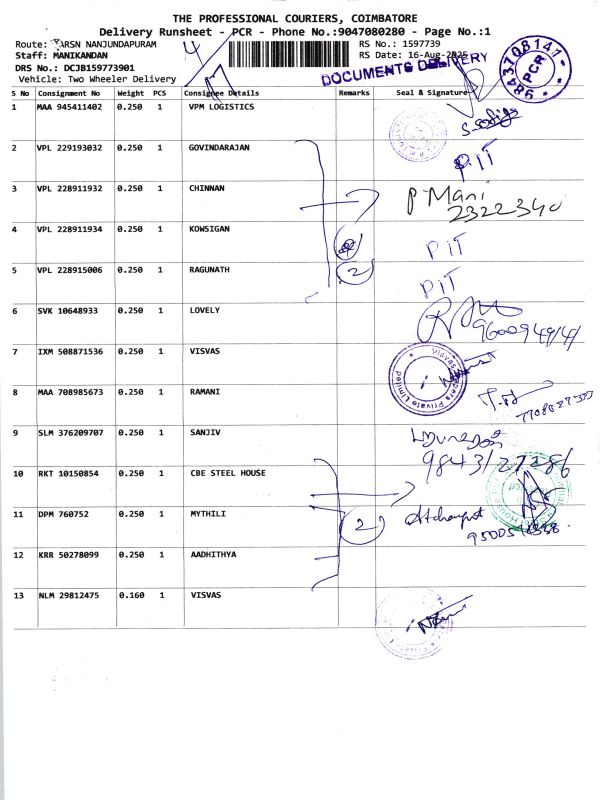 THE PROFESSIONAL COURIERS, COIMBATORE
Delivery Runsheet - PCR - Phone No.:9047080280 - Page No.:1
Route: ARSN NANJUNDAPURAM RS No.: 1597739
Staff: MANIKANDAN RS Date: 16-Aug-2025
DRS No.: DCJB159773901
Vehicle: Two Wheeler Delivery
DOCUMENTS DELIVERY
PCR
S No Consignment No Weight PCS Consignee Details Remarks Seal & Signature
1 MAA 945411402 0.250 1 VPM LOGISTICS
2 VPL 229193032 0.250 1 GOVINDARAJAN PIT
3 VPL 228911932 0.250 1 CHINNAN P. Mani
2322340
4 VPL 228911934 0.250 1 KOWSIGAN PIT
5 VPL 228915006 0.250 1 RAGUNATH 2 PIT
6 SVK 10648933 0.250 1 LOVELY
7 IXM 508871536 0.250 1 VISVAS
8 MAA 708985673 0.250 1 RAMANI
9 SLM 376209707 0.250 1 SANJIV
9843127286
10 RKT 10150854 0.250 1 CBE STEEL HOUSE
11 DPM 760752 0.250 1 MYTHILI 2
12 KRR 50278099 0.250 1 AADHITHYA
13 NLM 29812475 0.160 1 VISVAS